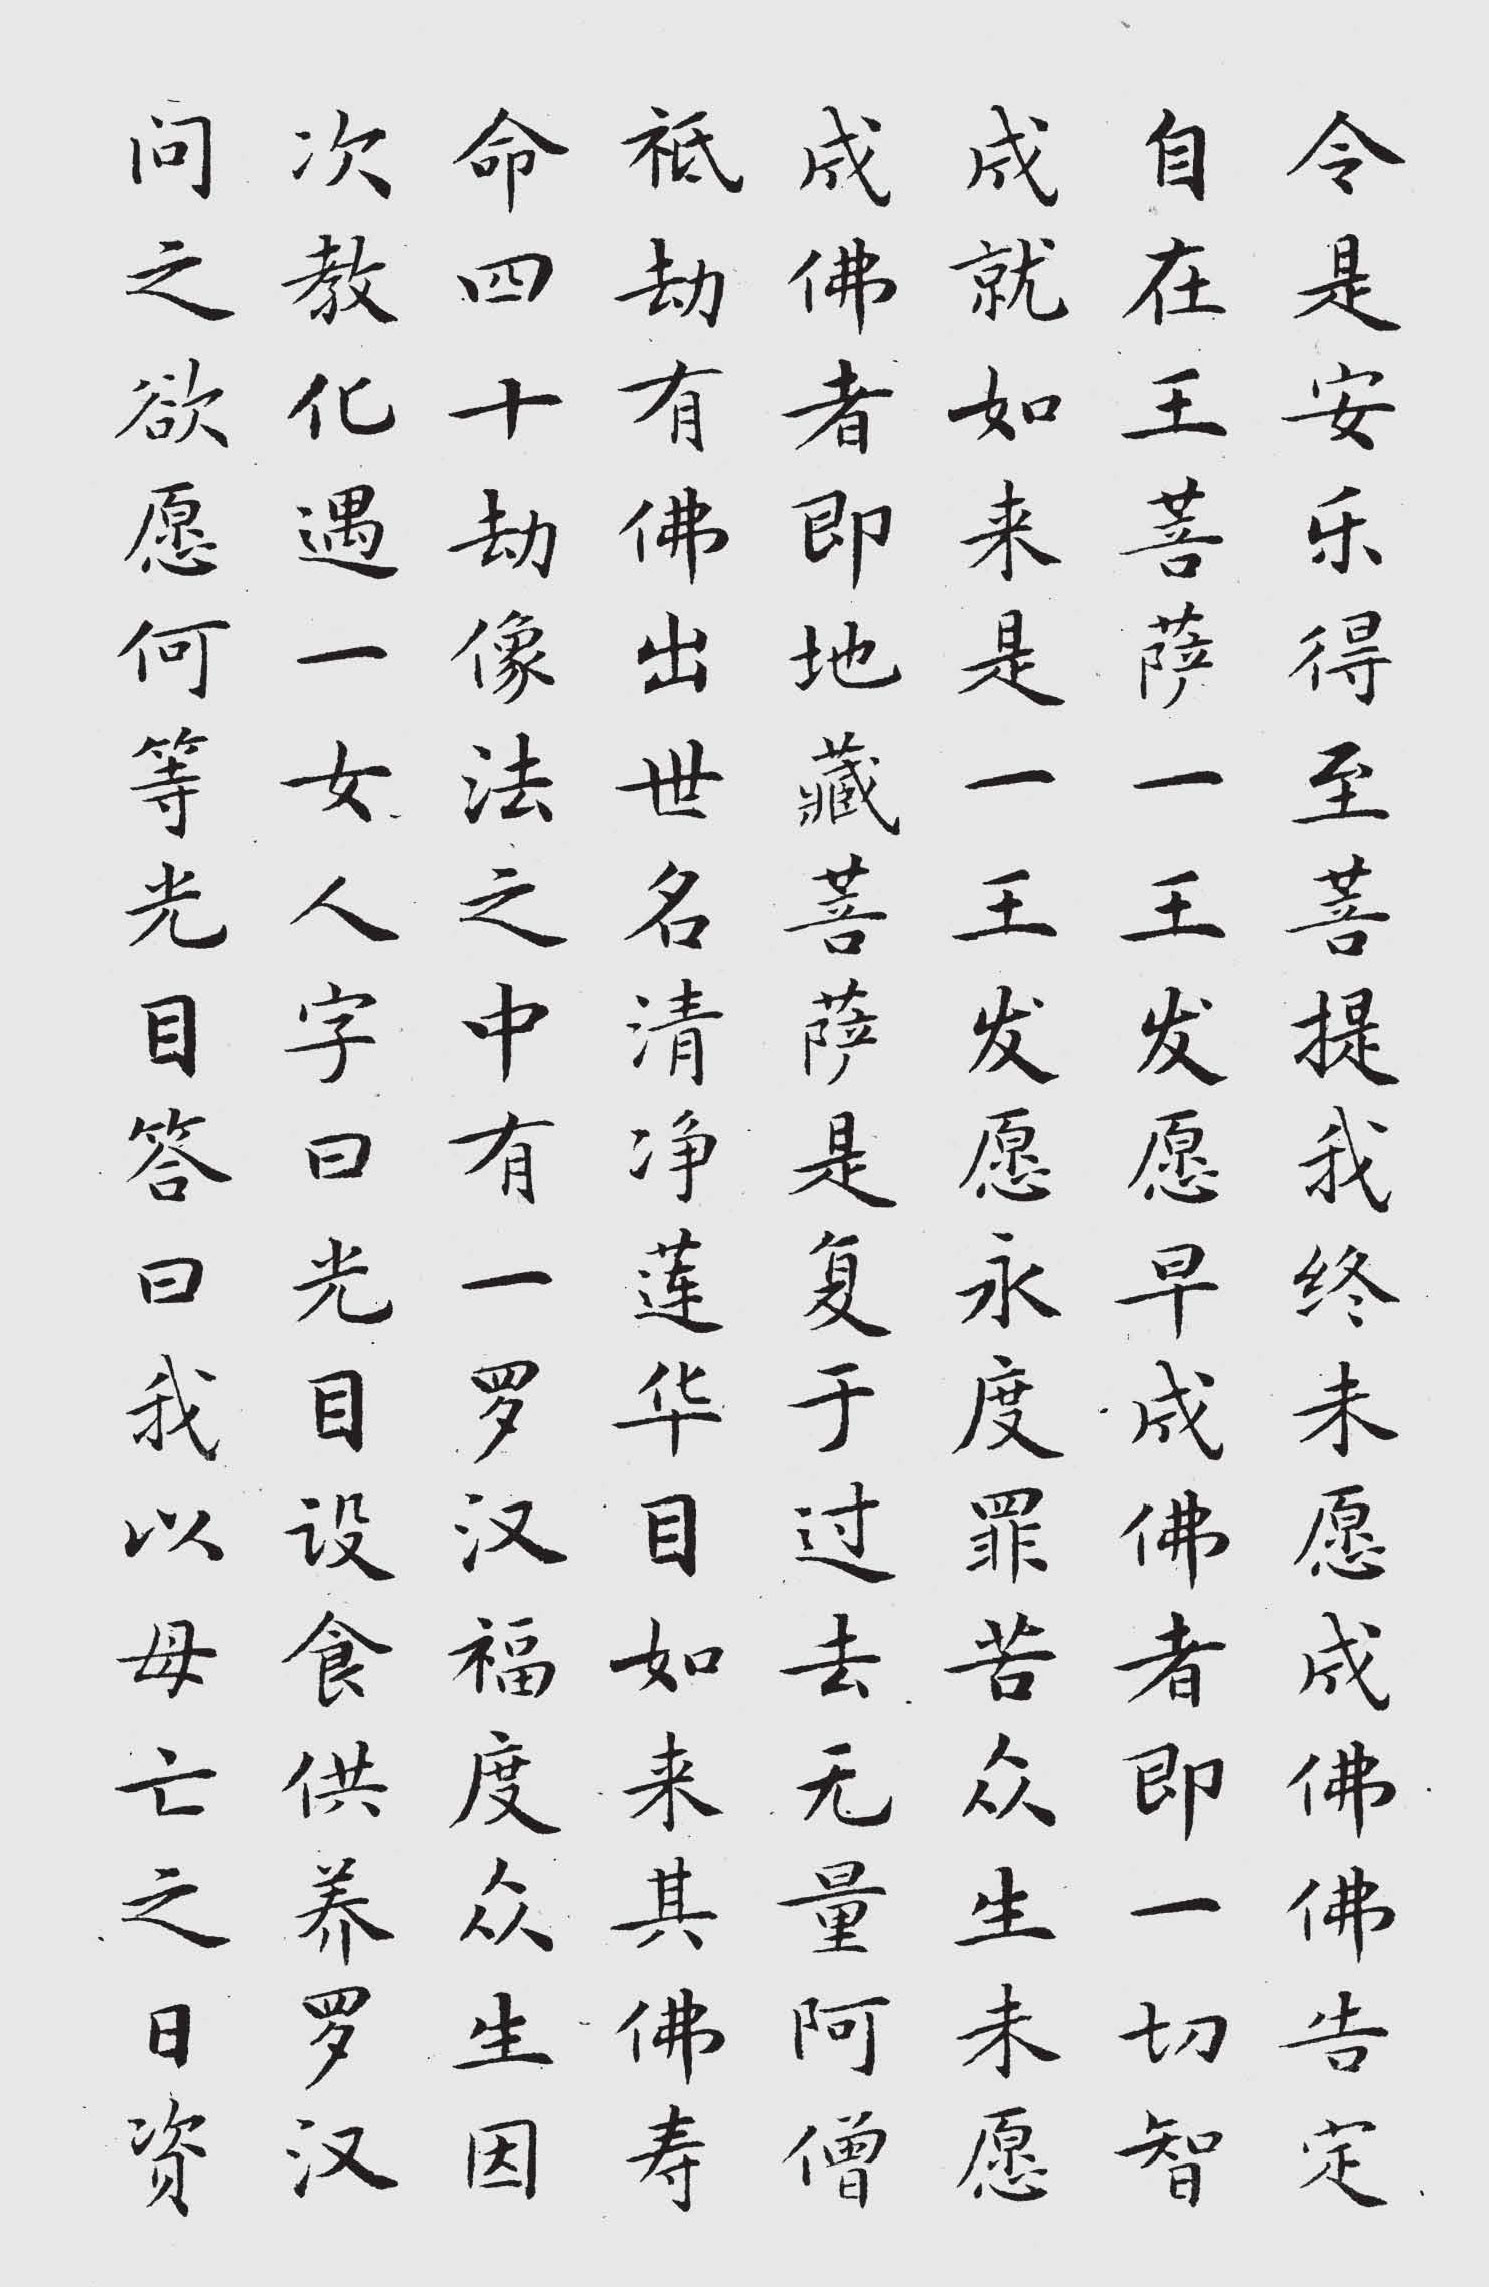 令是安乐得至菩提我终未愿成佛佛告定
自在王菩萨一王发愿早成佛者即一切智
成就如来是一王发愿永度罪苦众生未愿
成佛者即地藏菩萨是复于过去无量阿僧
祇劫有佛出世名清净莲华目如来其佛寿
命四十劫像法之中有一罗汉福度众生因
次教化遇一女人字曰光目设食供养罗汉
问之欲愿何等光目答曰我以母亡之日资